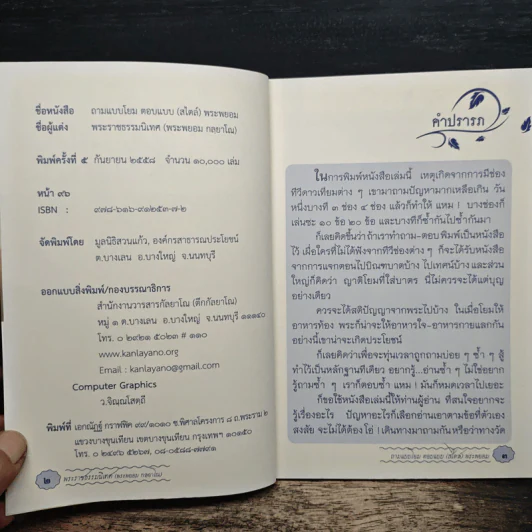 ชื่อหนังสือ ถามแบบโยม ตอบแบบ (สไตล์) พระพยอม
ชื่อผู้แต่ง พระราชธรรมนิเทศ (พระพยอม กลฺยาโณ)
พิมพ์ครั้งที่ ๕ กันยายน ๒๕๕๘ จำนวน ๑๐,๐๐๐ เล่ม
หน้า ๙๖
ISBN : ๙๗๘-๖๑๖-๙๑๒๕๓-๗-๒
จัดพิมพ์โดย มูลนิธิสวนแก้ว, องค์กรสาธารณประโยชน์
ต.บางเลน อ.บางใหญ่ จ.นนทบุรี
ออกแบบสิ่งพิมพ์/กองบรรณาธิการ
สำนักงานวารสารกัลยาโณ (ตึกกัลยาโณ)
หมู่ ๑ ต.บางเลน อ.บางใหญ่ จ.นนทบุรี ๑๑๑๔๐
โทร. ๐ ๒๙๒๑ ๕๐๒๓ # ๑๑๐
www.kanlayano.org
Email : kanlayano@gmail.com
Computer Graphics
ว.จิณณโสตถี
พิมพ์ที่ เอกณัฏฐ์ กราฟฟิค ๙๙/๑๐๑๐ ซ.พิศาลโครงการ ๘ ถ.พระราม ๒
แขวงบางขุนเทียน เขตบางขุนเทียน กรุงเทพฯ ๑๐๑๕๐
โทร. ๐-๒๘๙๖ ๕๒๖๗, ๐๘-๐๕๘๘-๗๗๓๑
๒ พระราชธรรมนิเทศ (พระพยอม กลฺยาโณ)
คำปรารภ
ในการพิมพ์หนังสือเล่มนี้ เหตุเกิดจากการมีช่อง
ทีวีดาวเทียมต่าง ๆ เขามาถามปัญหามากเหลือเกิน วัน
หนึ่งบางที ๓ ช่อง ๔ ช่อง แล้วก็ทำให้ แหม ! บางช่องก็
เล่นซะ ๑๐ ข้อ ๒๐ ข้อ และบางทีก็ซ้ำกันไปซ้ำกันมา
ก็เลยคิดขึ้นว่าถ้าเราทำถาม-ตอบ พิมพ์เป็นหนังสือ
ไว้ เผื่อใครที่ไม่ได้ฟังจากทีวีช่องต่าง ๆ ก็จะได้รับหนังสือ
จากการแจกตอนไปบิณฑบาตบ้าง ไปเทศน์บ้าง และส่วน
ใหญ่ก็คิดว่า ญาติโยมที่ใส่บาตร นี่ไม่ควรจะได้แต่บุญ
อย่างเดียว
ควรจะได้สติปัญญาจากพระไปบ้าง ในเมื่อโยมให้
อาหารท้อง พระก็น่าจะให้อาหารใจ-อาหารกายแลกกัน
อย่างนี้เขาน่าจะเกิดประโยชน์
ก็เลยคิดว่าเพื่อจะทุ่นเวลาถูกถามบ่อย ๆ ซ้ำ ๆ สู้
ทำไว้เป็นหลักฐานทีเดียว อยากรู้...อ่านซ้ำ ๆ ไม่ใช่อยาก
รู้ถามซ้ำ ๆ เราก็ตอบซ้ำ แหม ! มันก็หมดเวลาไปเยอะ
ก็ขอใช้หนังสือเล่มนี้ให้ท่านผู้อ่าน ที่สนใจอยากจะ
รู้เรื่องอะไร ปัญหาอะไรก็เลือกอ่านเอาตามข้อที่ตัวเอง
สงสัย จะไม่ได้ต้องโอ่ ! เดินทางมาถามกัน หรือว่าทางวัด
ถามแบบโยม ตอบแบบ (สไตล์) พระพยอม ๓